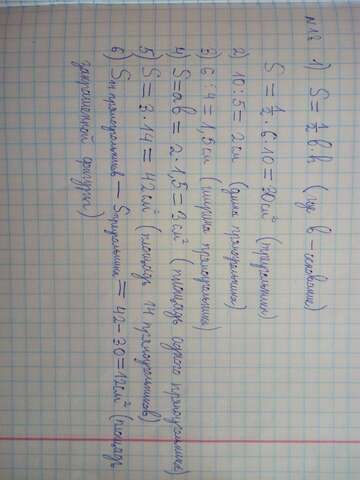 №18 1) S = ½ b·h (где b – основание)
S = ½ · 6 · 10 = 30 см² (треугольник)
2) 10 : 5 = 2 см (длина прямоугольника)
3) 6 : 4 = 1,5 см (ширина прямоугольника)
4) S = ab = 2 · 1,5 = 3 см² (площадь одного прямоугольника)
5) S = 3 · 14 = 42 см² (площадь 14 прямоугольников)
6) S14 прямоугольников – Sтреугольника = 42 - 30 = 12 см² (площадь
закрашенной фигуры)